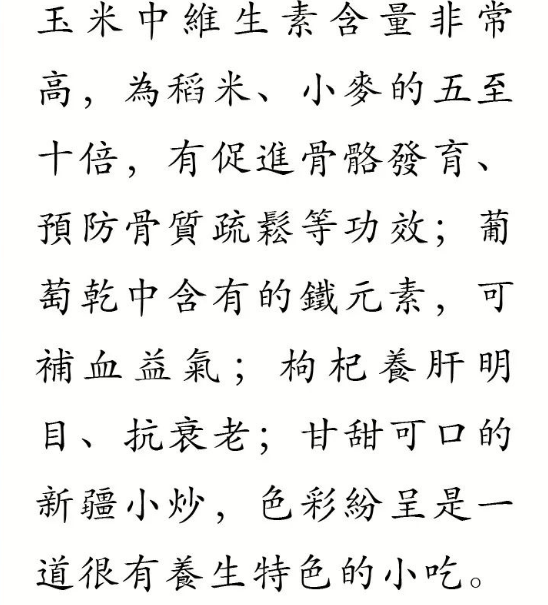 玉米中維生素含量非常
高，為稻米、小麥的五至
十倍，有促進骨骼發育、
預防骨質疏鬆等功效；葡
萄乾中含有的鐵元素，可
補血益氣；枸杞養肝明
目、抗衰老；甘甜可口的
新疆小炒，色彩紛呈是一
道很有養生特色的小吃。